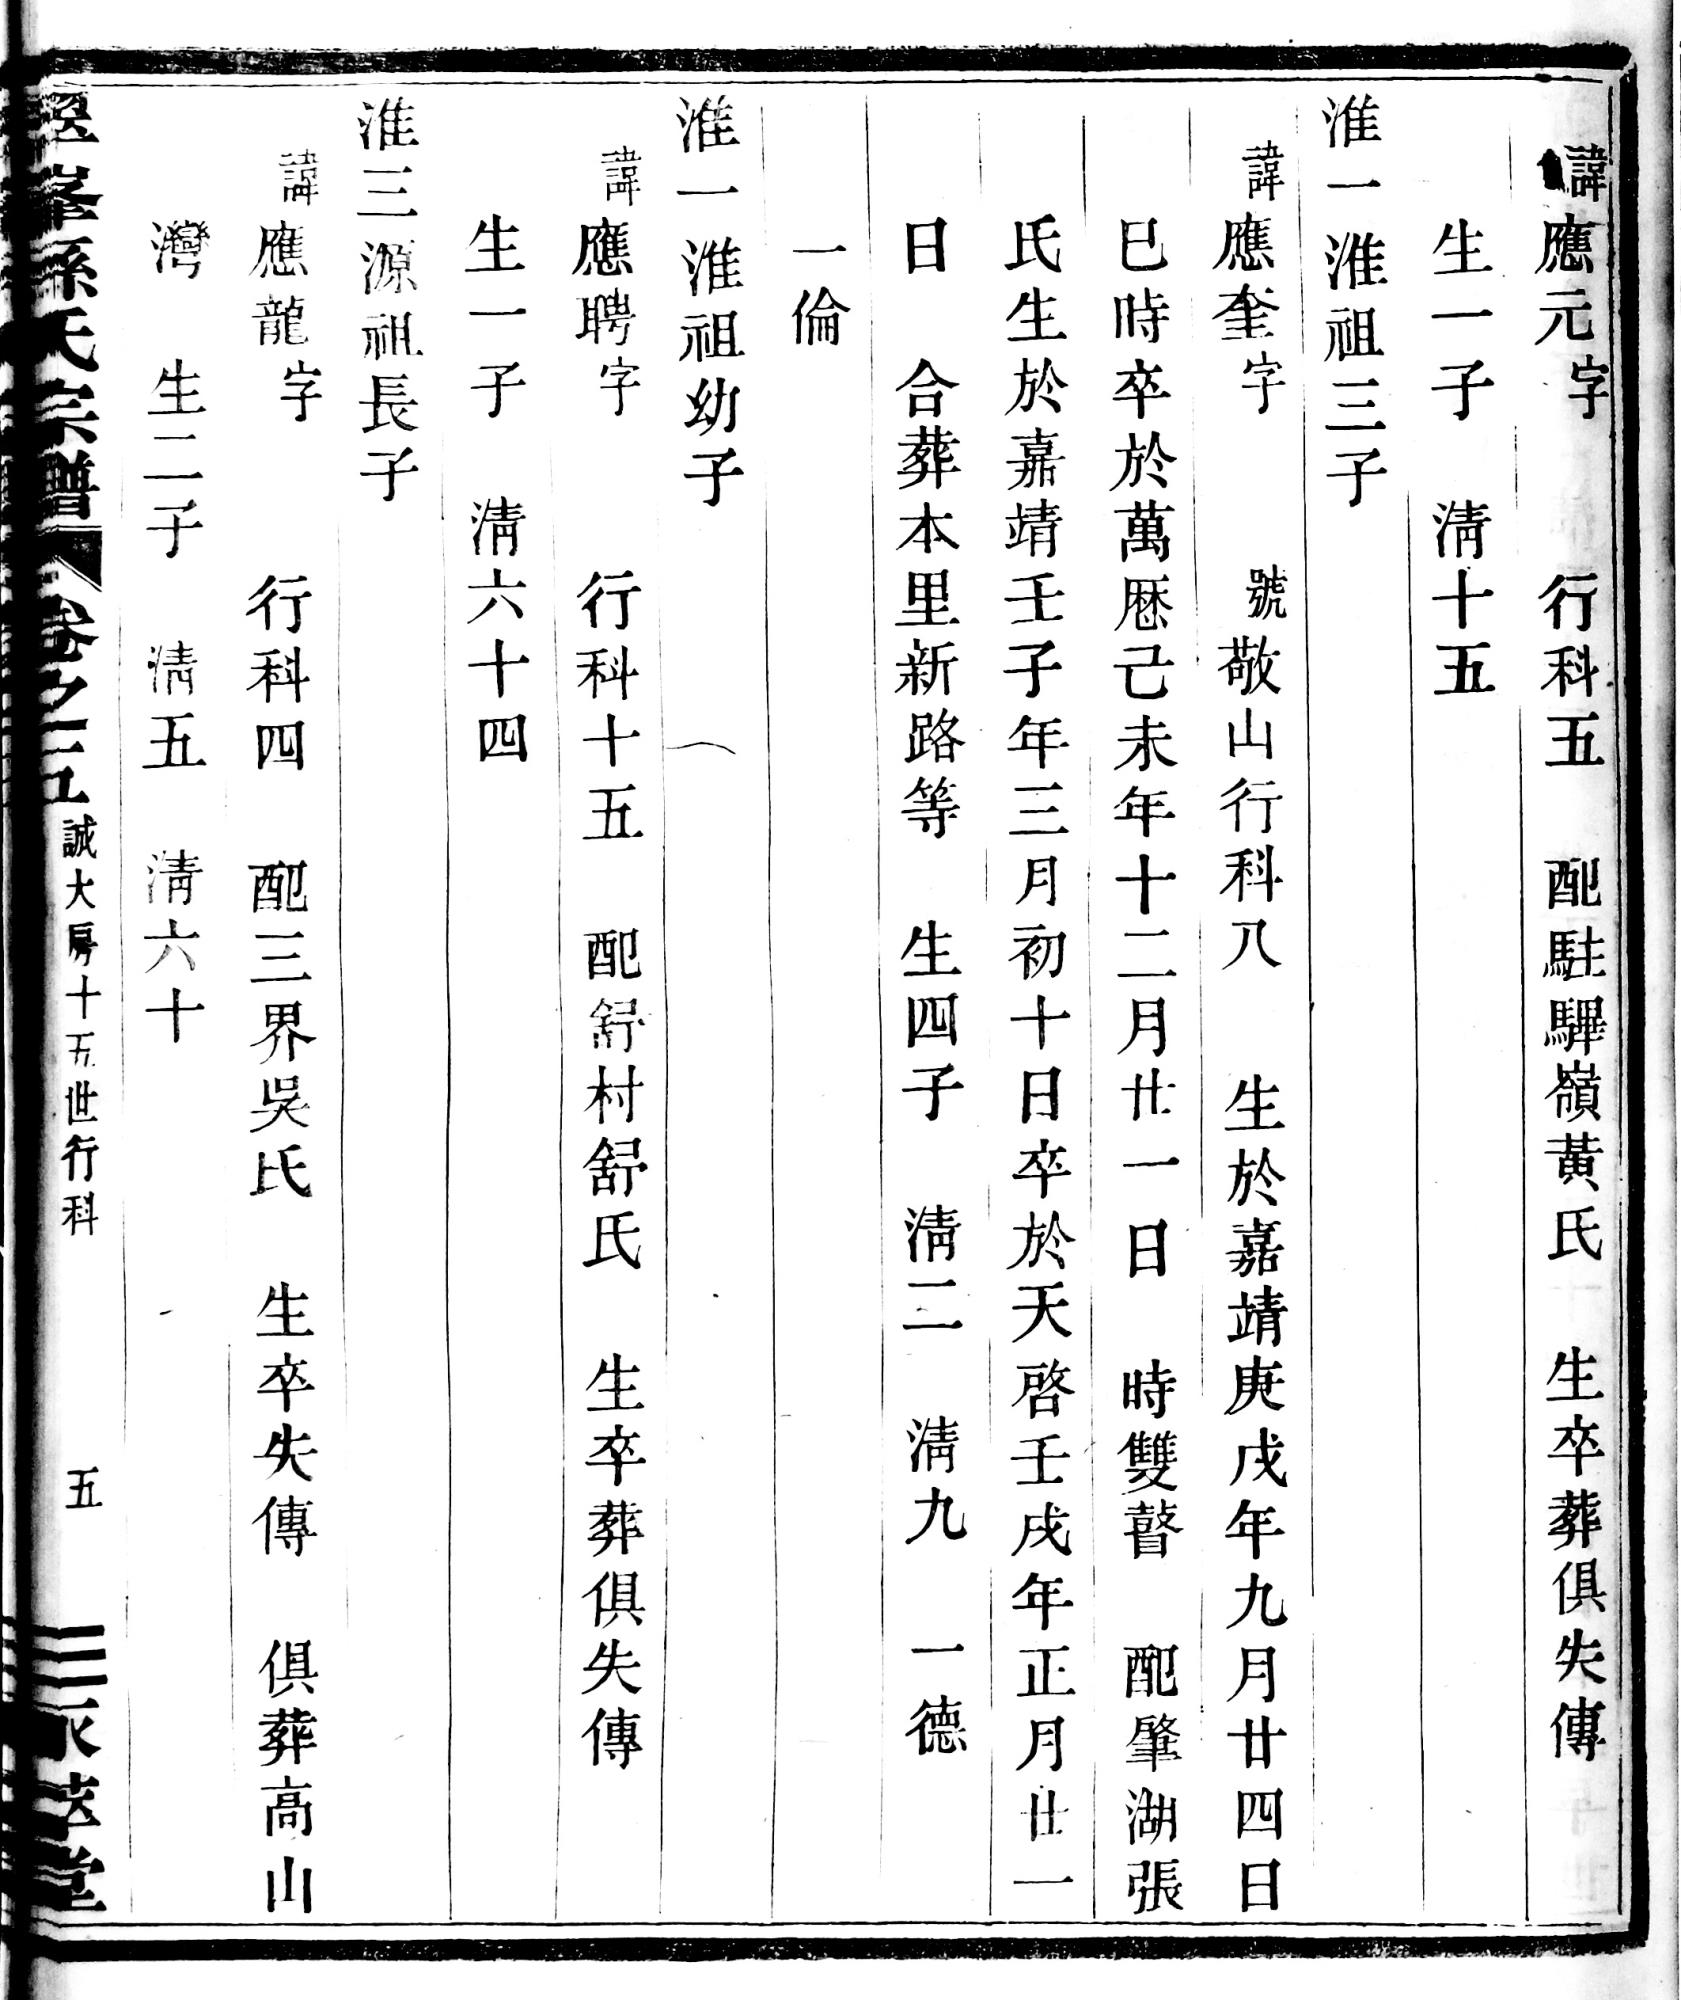 諱應元字　行科五　配駐驆嶺黃氏　生卒葬俱失傳
生一子　淸十五
淮一淮祖三子
諱應奎字　號敬山行科八　生於嘉靖庚戌年九月廿四日
巳時卒於萬厯己未年十二月廿一日　時雙瞽　配肇湖張
氏生於嘉靖壬子年三月初十日卒於天啓壬戌年正月廿一
日　合葬本里新路等　生四子　淸二　淸九　一德
一倫
淮一淮祖幼子
諱應聘字　行科十五　配舒村舒氏　生卒葬俱失傳
生一子　淸六十四
淮三源祖長子
諱應龍字　行科四　配三界吳氏　生卒失傳　俱葬高山
灣　生二子　淸五　淸六十
峯孫氏宗譜　卷之　誠大房十五世行科　五　萃堂